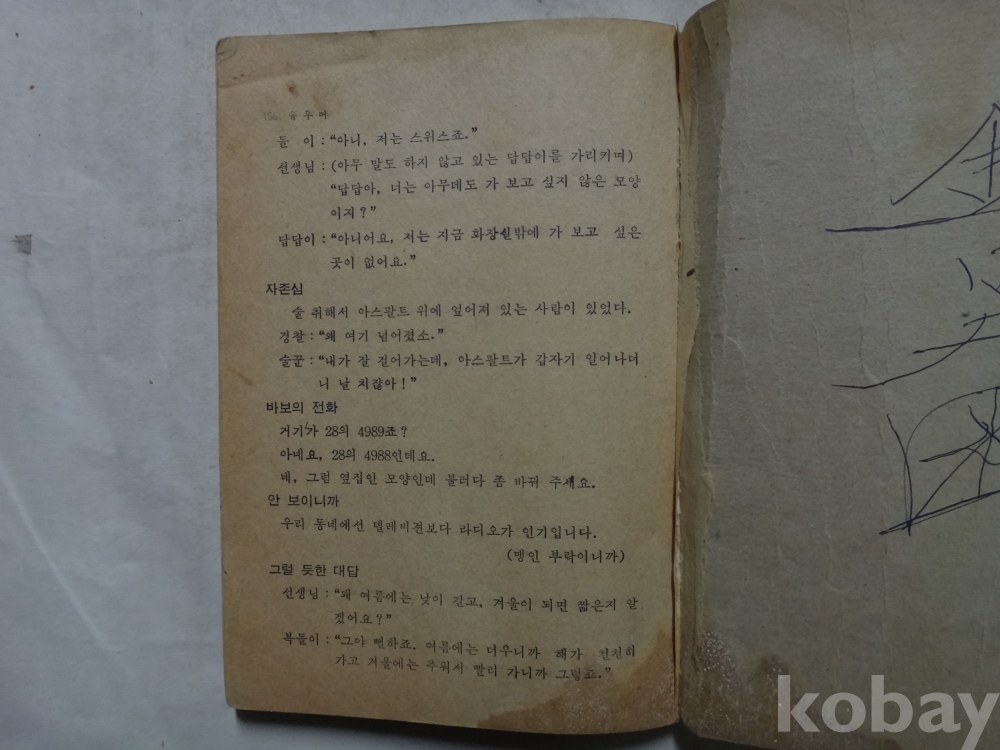 유우머
돌 이 : "아니, 저는 스위스죠."
선생님 : (아무 말도 하지 않고 있는 답답이를 가리키며)
"답답아, 너는 아무데도 가 보고 싶지 않은 모양
이지?"
답답이 : "아니어요, 저는 지금 화장실밖에 가 보고 싶은
곳이 없어요."
자존심
술 취해서 아스팔트 위에 엎어져 있는 사람이 있었다.
경찰 : "왜 여기 넘어졌소."
술꾼 : "내가 잘 걸어가는데, 아스팔트가 갑자기 일어나더
니 날 치잖아!"
바보의 전화
거기가 28의 4989죠?
아녜요, 28의 4988인데요.
네, 그럼 옆집인 모양인데 불러다 좀 바꿔 주세요.
안 보이니까
우리 동네에선 텔레비젼보다 라디오가 인기입니다.
(맹인 부락이니까)
그럴 듯한 대답
선생님 : "왜 여름에는 낮이 길고, 겨울이 되면 짧은지 알
겠어요?"
복돌이 : "그야 뻔하죠. 여름에는 더우니까 해가 천천히
가고 겨울에는 추워서 빨리 가니까 그렇죠."
kobay